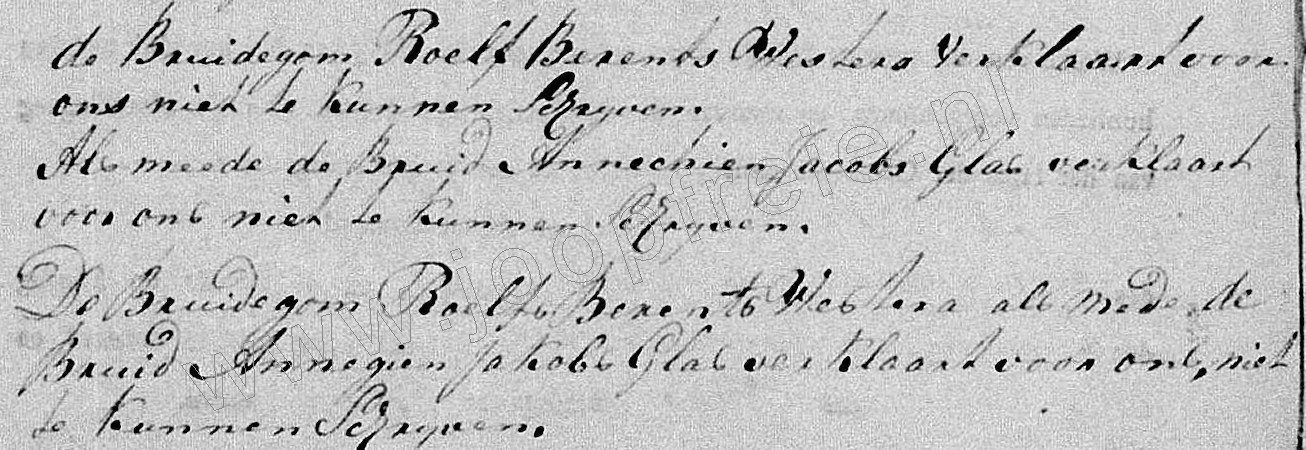 de Bruidegom Roelf Berents Westera Verklaart voor
ons niet te kunnen Schryven.
Als meede de Bruid Annechien Jacobs Glas verklaart
voor ons niet te kunnen Schryven.
De Bruidegom Roelfs Berents Westera als mede de
Bruid Annegien Jakobs Glas verklaart voor ons, niet
te kunnen Schryven.
www.joopfreie.nl